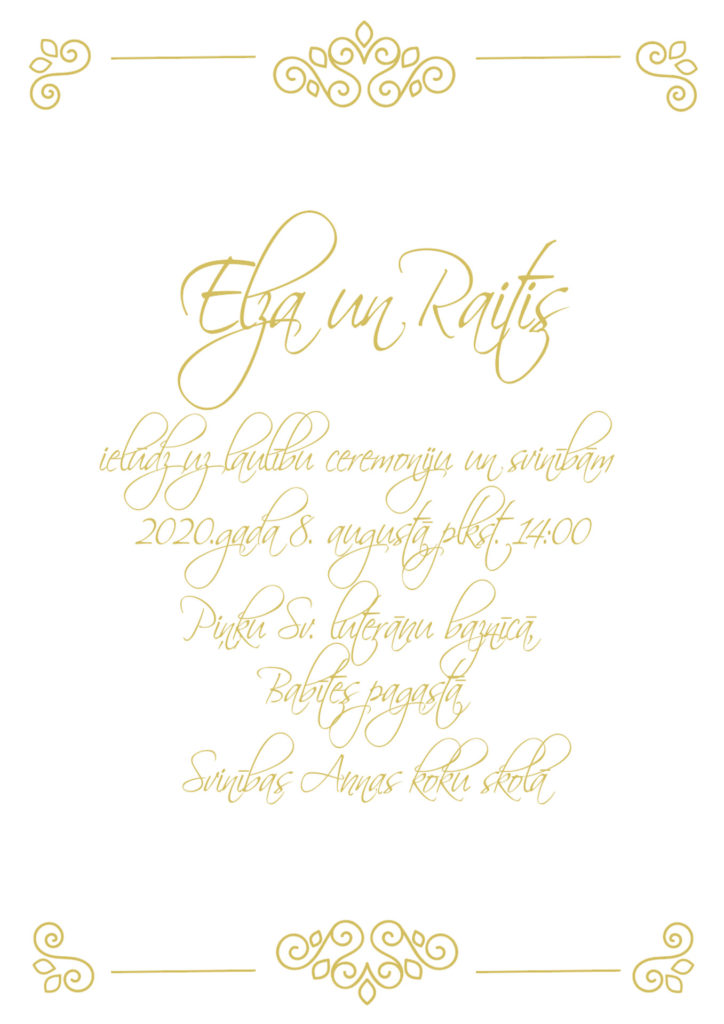 Elza un Raitis
ielūdz uz laulību ceremoniju un svinībām
2020.gada 8. augustā plkst. 14:00
Piņķu Sv. luterāņu baznīcā,
Babītes pagastā,
Svinības Annas koku skolā